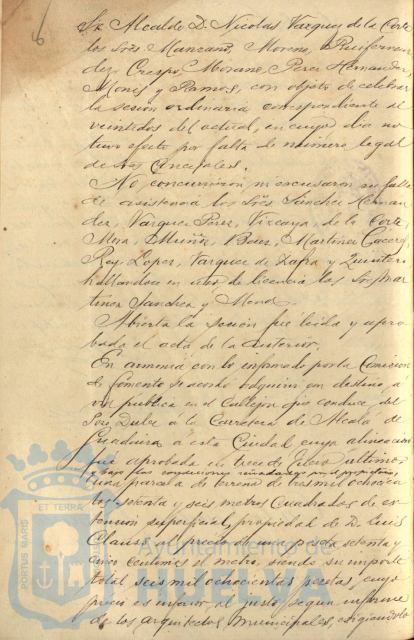 6
Sr. Alcalde D. Nicolas Vazquez de la Corte
los Sres Manzano, Moreno, Ruifernan
dez, Crespo, Morano, Perez Hernandez
Monis y Ramos, con objeto de celebrar
la sesion ordinaria correspondiente al
veintidos del actual, en cuyo dia no
tuvo efecto por falta de número legal
de Sres Concejales.
No concurrieron, ni excusaron su falta
de asistencia los Sres Sánchez Hernan
dez, Vazquez Perez, Vizcaya, de la Corte,
Mora, Muñiz, Baez, Martinez Cacero
Rey, Lopez, Vazquez de Zafra y Quintero
hallandose en uso de licencia los Sres Mar
tinez Sanchez y Mora.
Abierta la sesion fué leida y apro
bada el acta de la anterior.
En armonia con lo informado por la Comision
de Fomento se acordó adquirir con destino a
via publica en el Callejon que conduce del
Pozo Dulce a la Carretera de Alcalá de
Guadaira a esta Ciudad cuya alineacion
fué aprobada en trece de ultimo
y bajo las condiciones por el propietario,
una parcela de terreno de tres mil ochocien
tos setenta y seis metros cuadrados de ex-
tension superficial, propiedad de D. Luis
Clauss, al precio de una peseta setenta y
cinco centimos el metro, siendo su importe
total seis mil ochocientas pesetas cuyo
precio es inferior al justo, segun informe
de los arquitectos municipales,
PORTUS MARIS
ET TERRÆ
Ayuntamiento de
HUELVA